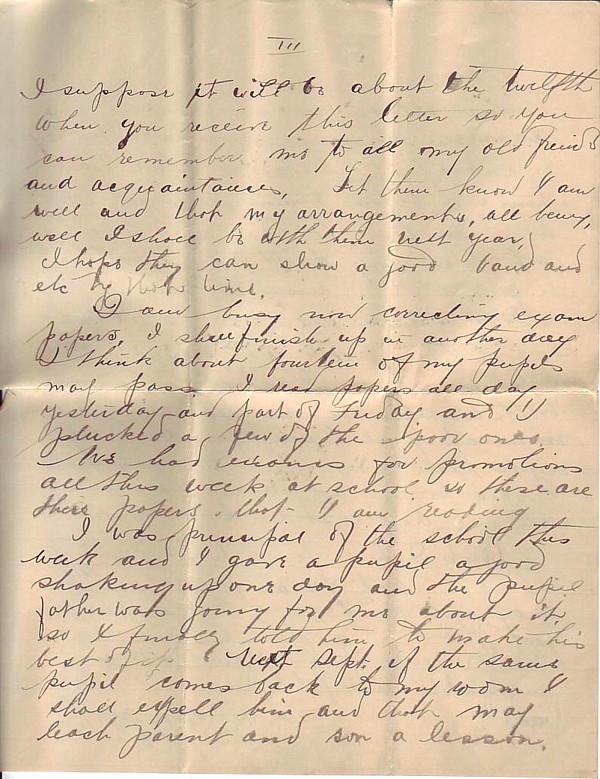 III
I suppose it will be about the twelfth
when you receive this letter so you
can remember me to all my old friends
and acquaintances. Let them know I am
well and that my arrangements, all being,
well I shall be with them next year,
I hope they can show a good band and
etc by that time.
I am busy now correcting exam
papers, I shall finish up in another day
I think about fourteen of my pupils
may pass. I read papers all day
yesterday and part of Friday and I
plucked a few of the poor ones.
We had exams for promotions
all this week at school so these are
there papers that I am reading
I was principal of the school this
week and I gave a pupil a good
shaking up one day and the pupil
father was going for me about it,
so I finally told him to make his
best of it next Sept. if the same
pupil comes back to my room I
shall expell him and that may
teach parent and son a lesson.